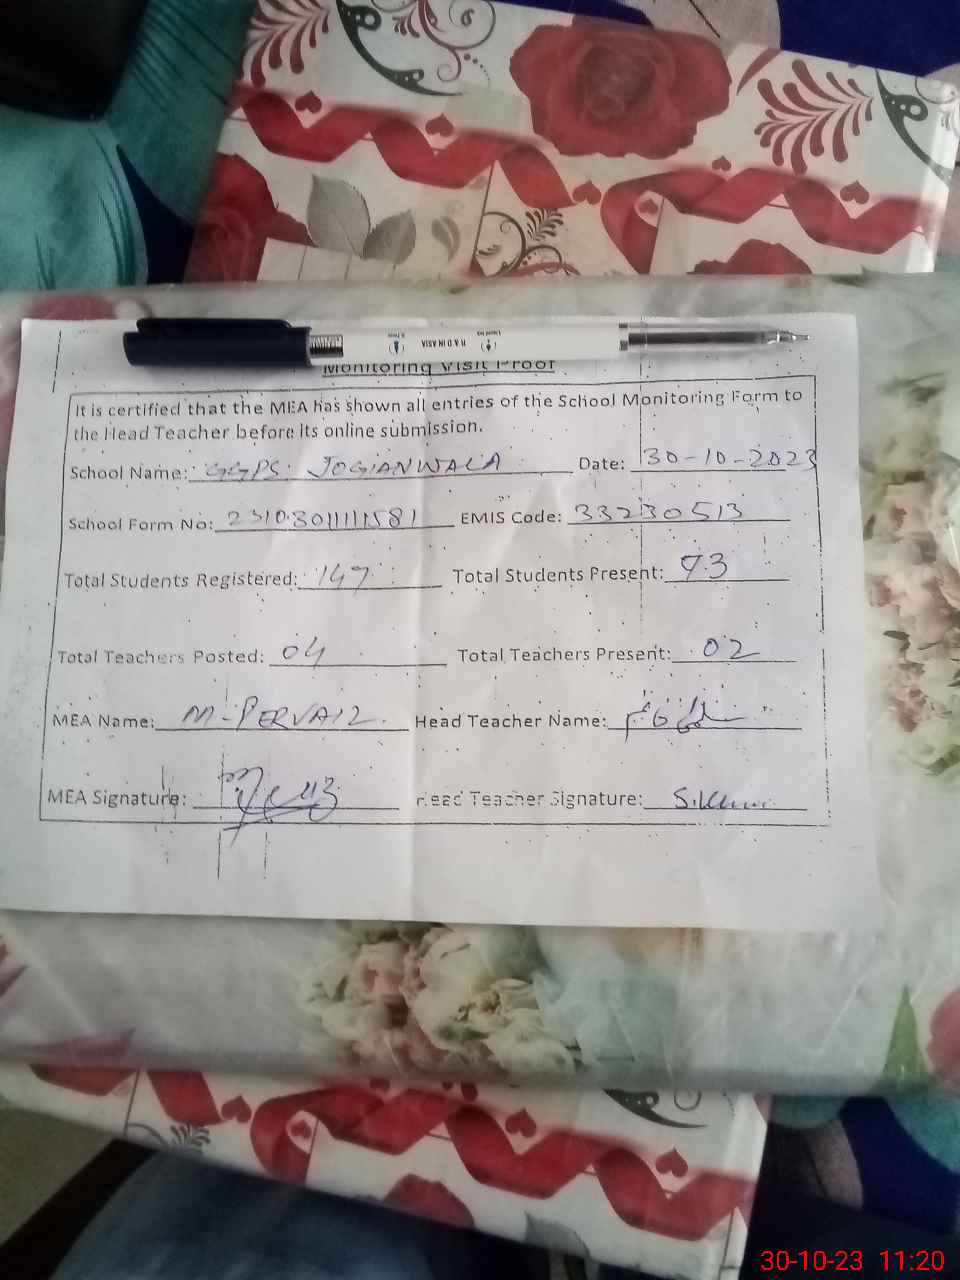 Monitoring Visit Proof
It is certified that the MEA has shown all entries of the School Monitoring Form to
the Head Teacher before its online submission.
School Name: GGPS. JOGIANWALA Date: 30-10-2023
School Form No: 23103011111581 EMIS Code: 33230513
Total Students Registered: 147 Total Students Present: 93
Total Teachers Posted: 04 Total Teachers Present: 02
MEA Name: M-PERVAIZ Head Teacher Name:
MEA Signature: Head Teacher Signature:
30-10-23 11:20